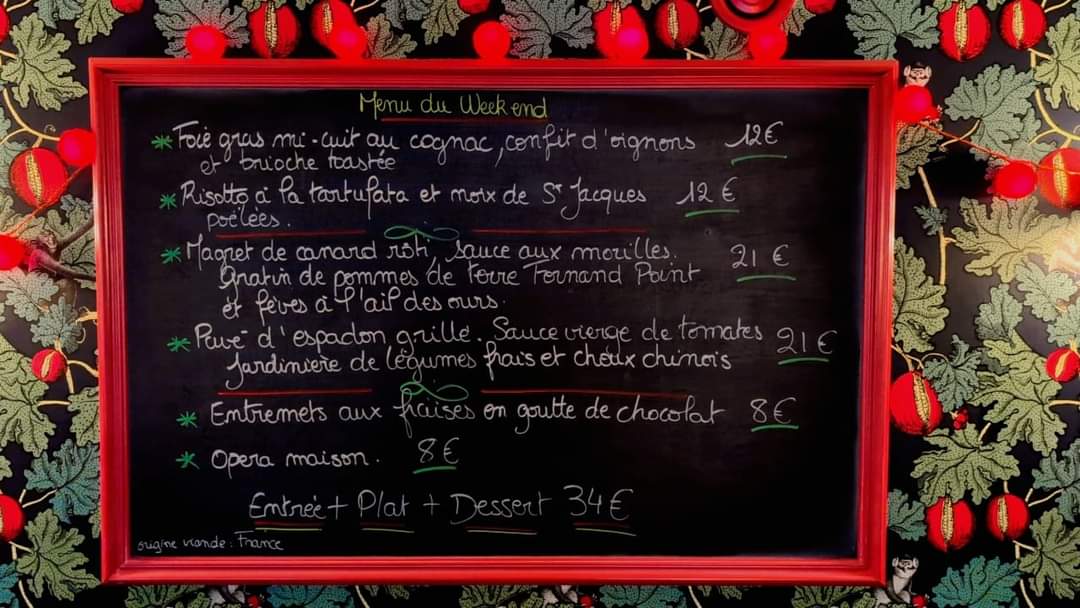 Menu du Week end
* Foie gras mi-cuit au cognac, confit d'oignons 12€
et brioche toastée
* Risotto à la tartufata et noix de St Jacques 12 €
poêlées.
* Magret de canard rôti, sauce aux morilles. 21 €
Gratin de pommes de terre Fernand Point
et fèves à l'ail des ours.
* Pavé d'espadon grillé. Sauce vierge de tomates 21€
Jardinière de légumes frais et choux chinois
* Entremets aux fraises en goutte de chocolat 8€
* Opera maison. 8€
Entrée + Plat + Dessert 34€
origine viande : France